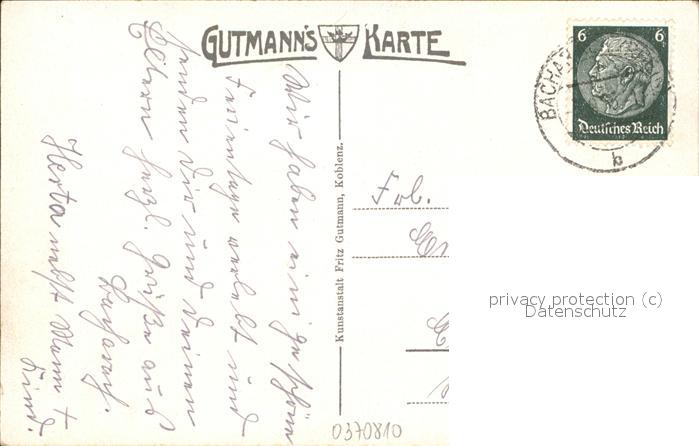 GUTMANN'S KARTE
6 6
Deutsches Reich
BACHA
b
Wir haben ein paar schöne
Ferientage verlebt und
senden Dir und Deinen
Eltern herzl. Grüße aus
Bacharach.
Herta nebst Mann +
Kind.
Kunstanstalt Fritz Gutmann, Koblenz.
Frl.
privacy protection (c)
Datenschutz
0370810